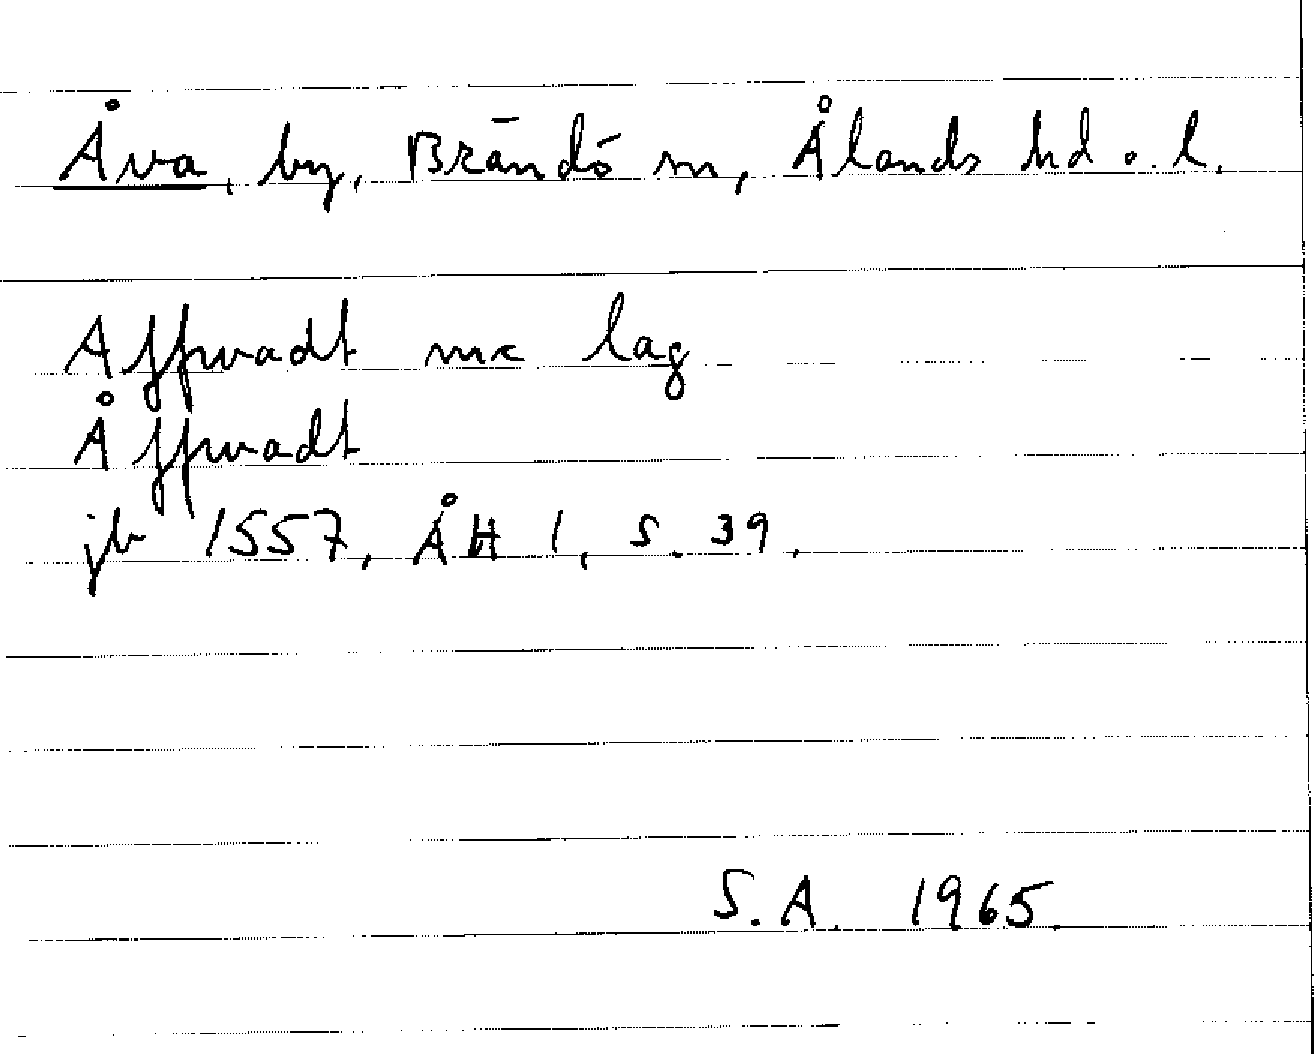 Åva, by, Brändö sn, Ålands hd o. l.
Affwadt mc lag
Åffwadt
jb 1557, ÅH 1, s. 39.
S.A. 1965.